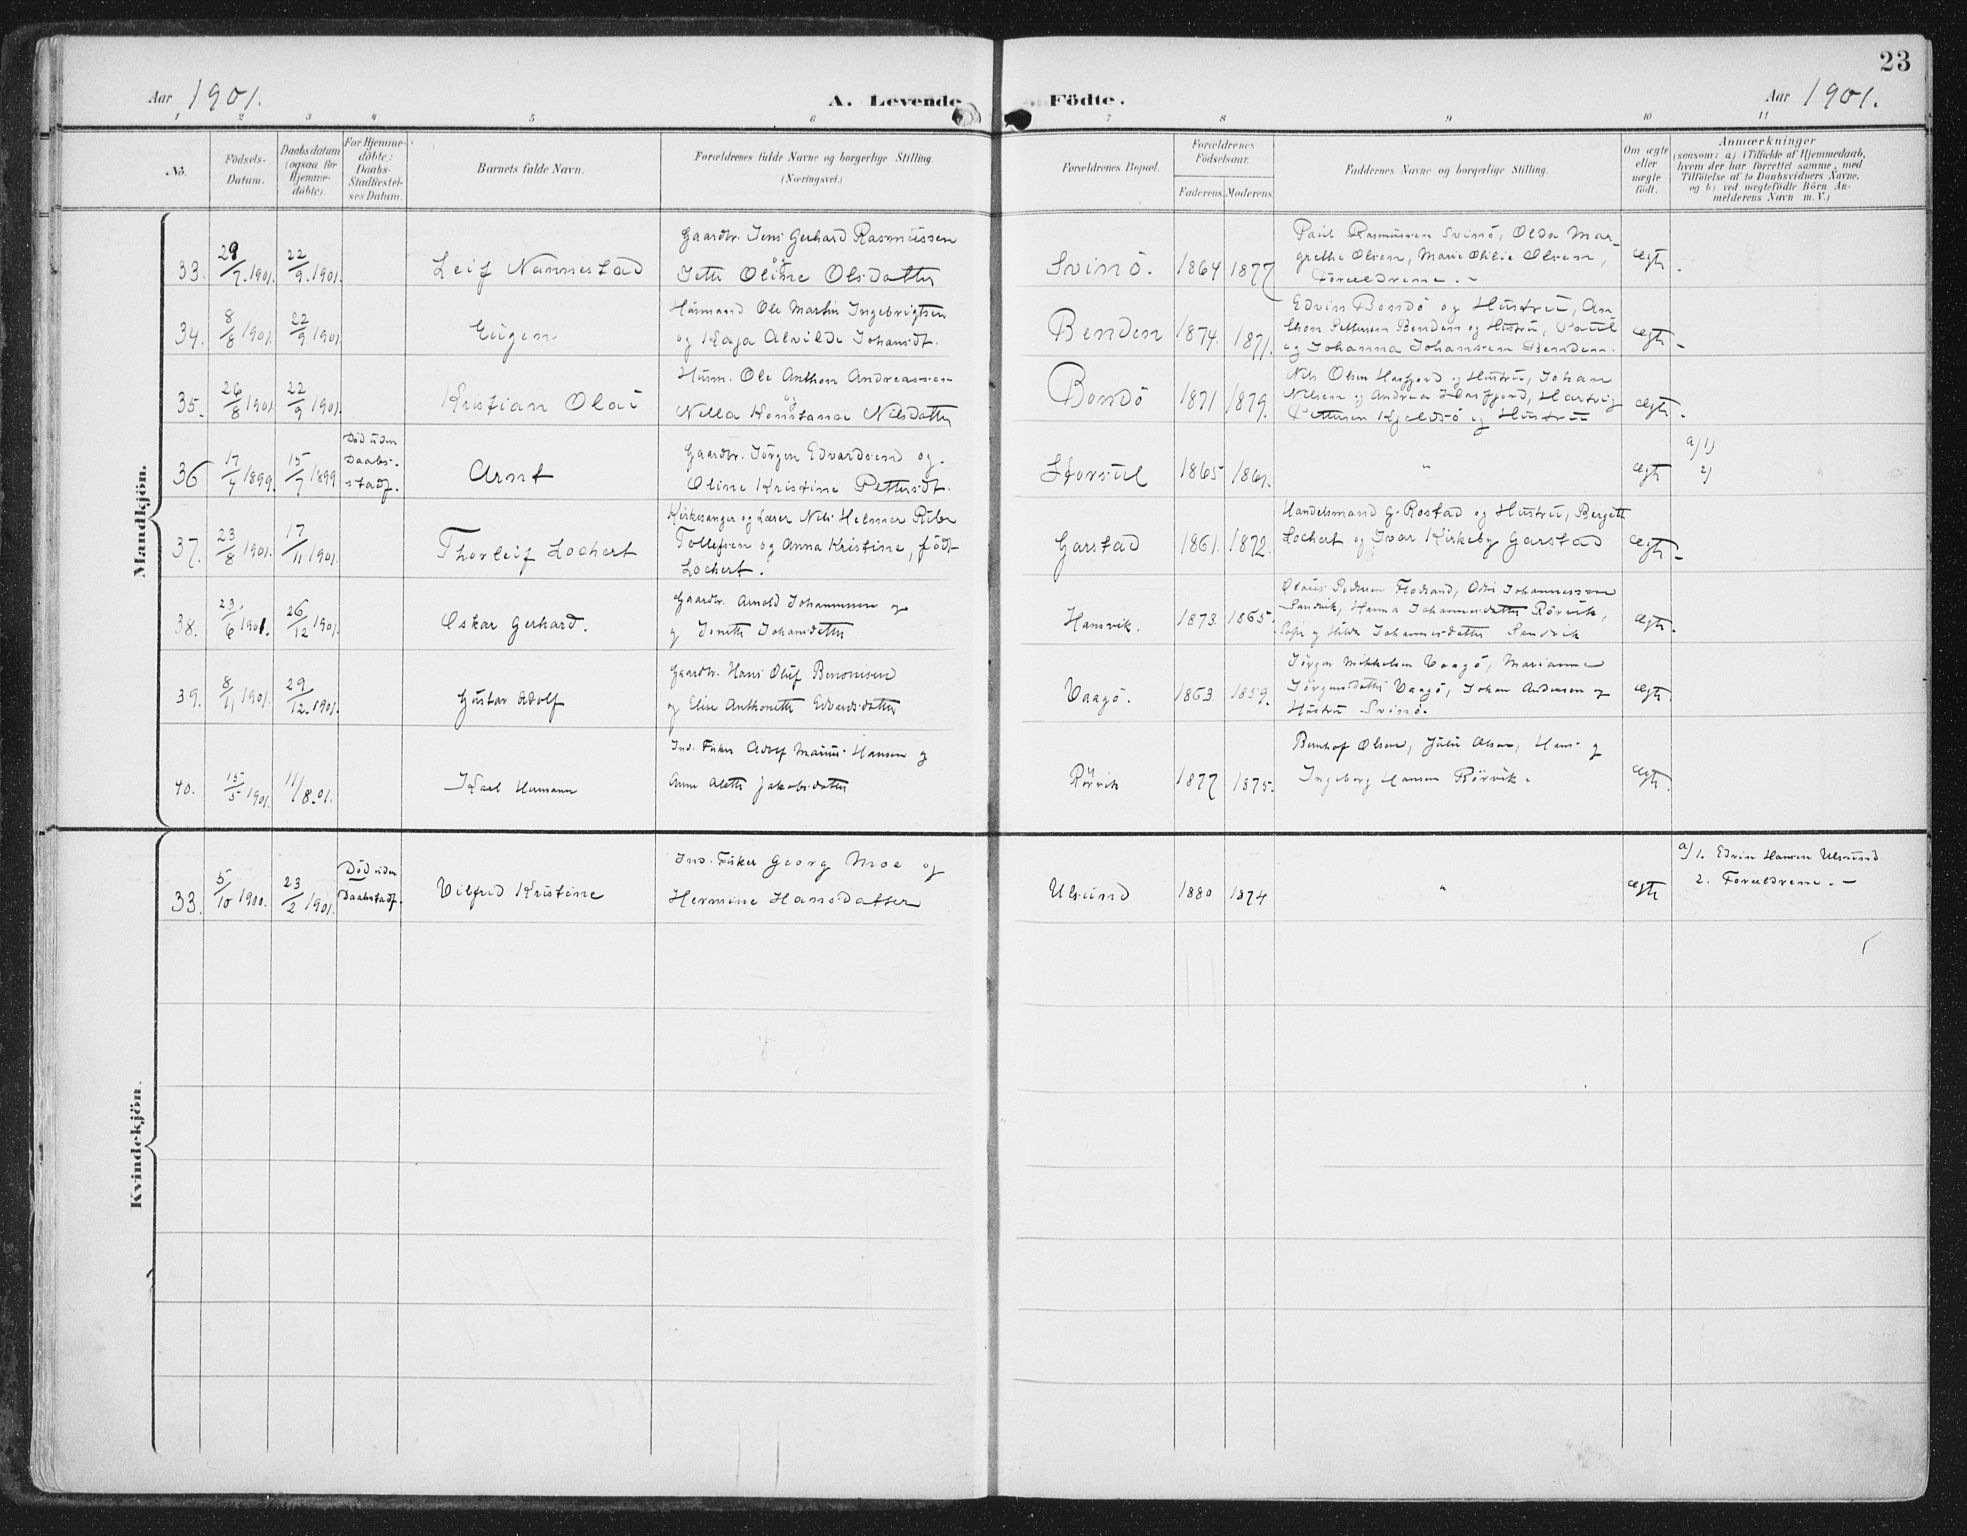 23
Aar 1901.
A. Levende Födte.
Aar 1901.
1 2 3 4 5 6 7 8 9 10 11
No.
Födsels-
Datum.
Daabsdatum
(ogsaa for
Hjemme-
döbte).
For Hjemme-
döbte:
Daabs-
Stadfæstel-
ses Datum.
Barnets fulde Navn.
Forældrenes fulde Navne og borgerlige Stilling.
(Næringsvei.)
Forældrenes Bopæl.
Forældrenes
Födselsaar.
Faderens. Moderens.
Faddernes Navne og borgerlige Stilling.
Om ægte
eller
uægte
födt.
Anmærkninger
(saasom: a) i Tilfælde af Hjemmedaab,
hvem der har forrettet samme, med
Tilföielse af to Daabsvidners Navne,
og b) ved uægtefödte Börn An-
melderens Navn m. V.)
Mandkjön.
33. 29/7 1901. 22/9 1901.
Leif Nannestad
Gaardbr. Jens Gerhard Rasmussen
og
Jette Oline Olsdatter
Svinö. 1864 1877
Paul Rasmussen Svinö, Olda Mar-
grethe Olsen, Marie Otilie Olsen,
Forældrene. -
ægte.
34. 8/8 1901. 22/9 1901.
Eugen
Husmand Ole Martin Ingebrigtsen
og Kaja Alvilde Johansdt.
Benden 1874. 1871.
Edvin Bondö og Hustru, An-
thon Pettersen Benden og Hustru, Paul
og Johanna Johansen Benden.
ægte.
35. 26/8 1901. 22/9 1901.
Kristian Olai
Husm. Ole Anthon Andreassen
og
Nella Konstance Nilsdatter
Bondö 1871 1879.
Nils Olsen Hasfjord og Hustru, Johan
Nilsen og Andrea Hasfjord, Hartvig
Pettersen Kjeldsö og Hustru
ægte.
36 17/7 1899. 15/7 1899
Död uden
Daabs-
stadf.
Arnt
Gaardbr. Jörgen Edvardsen og
Oline Kristine Pettersdt.
Storsul 1865 1861.
"
ægte
a/1)
2)
37. 23/8 1901. 17/11 1901.
Thorleif Lochert
Kirkesanger og Lærer Nils Helmer Riber
Tollefsen og Anna Kristine, född
Lochert.
Garstad 1861. 1872.
Handelsmand G. Rostad og Hustru, Bergitte
Lochert og Ivar Kirkeby Garstad
ægte.
38. 23/6 1901. 26/12 1901.
Oskar Gerhard.
Gaardbr. Arnold Johannesen og
og Jenette Johansdatter
Hansvik. 1873 1865.
Olaus Pedersen Flodsand, Odin Johannessen
Sandvik, Hanna Johannesdatter Rörvik,
Sofie og Hilda Johannesdatter Sandvik
ægte.
39. 8/11 1901. 29/12. 1901.
Gustav Adolf
Gaardbr. Hans Oluf Benonisen
og Elise Anthonette Edvardsdatter
Vaagö. 1863 1859.
Jörgen Mikkelsen Vaagö, Marianne
Jörgensdatter Vaagö, Johan Andersen og
Hustru Svinö.
ægte.
40. 15/5 1901. 11/8.01.
Karl Hermann
Ind. Fisker Adolf Marius Hansen og
Anne Alette Jakobsdatter
Rörvik 1877 1875.
Bernhof Olsen, Julie Olsen, Hans og
Ingeborg Hansen Rörvik.
ægte.
Kvindekjön.
33. 5/10 1900. 23/2 1901.
Död uden
Daabstadf.
Vilfred Kristine
Ind. Fisker Georg Moe og
Hermine Hansdatter
Ulsund 1880 1874
"
ægte
a/1. Edvin Hansen Ulsund
2. Forældrene. -